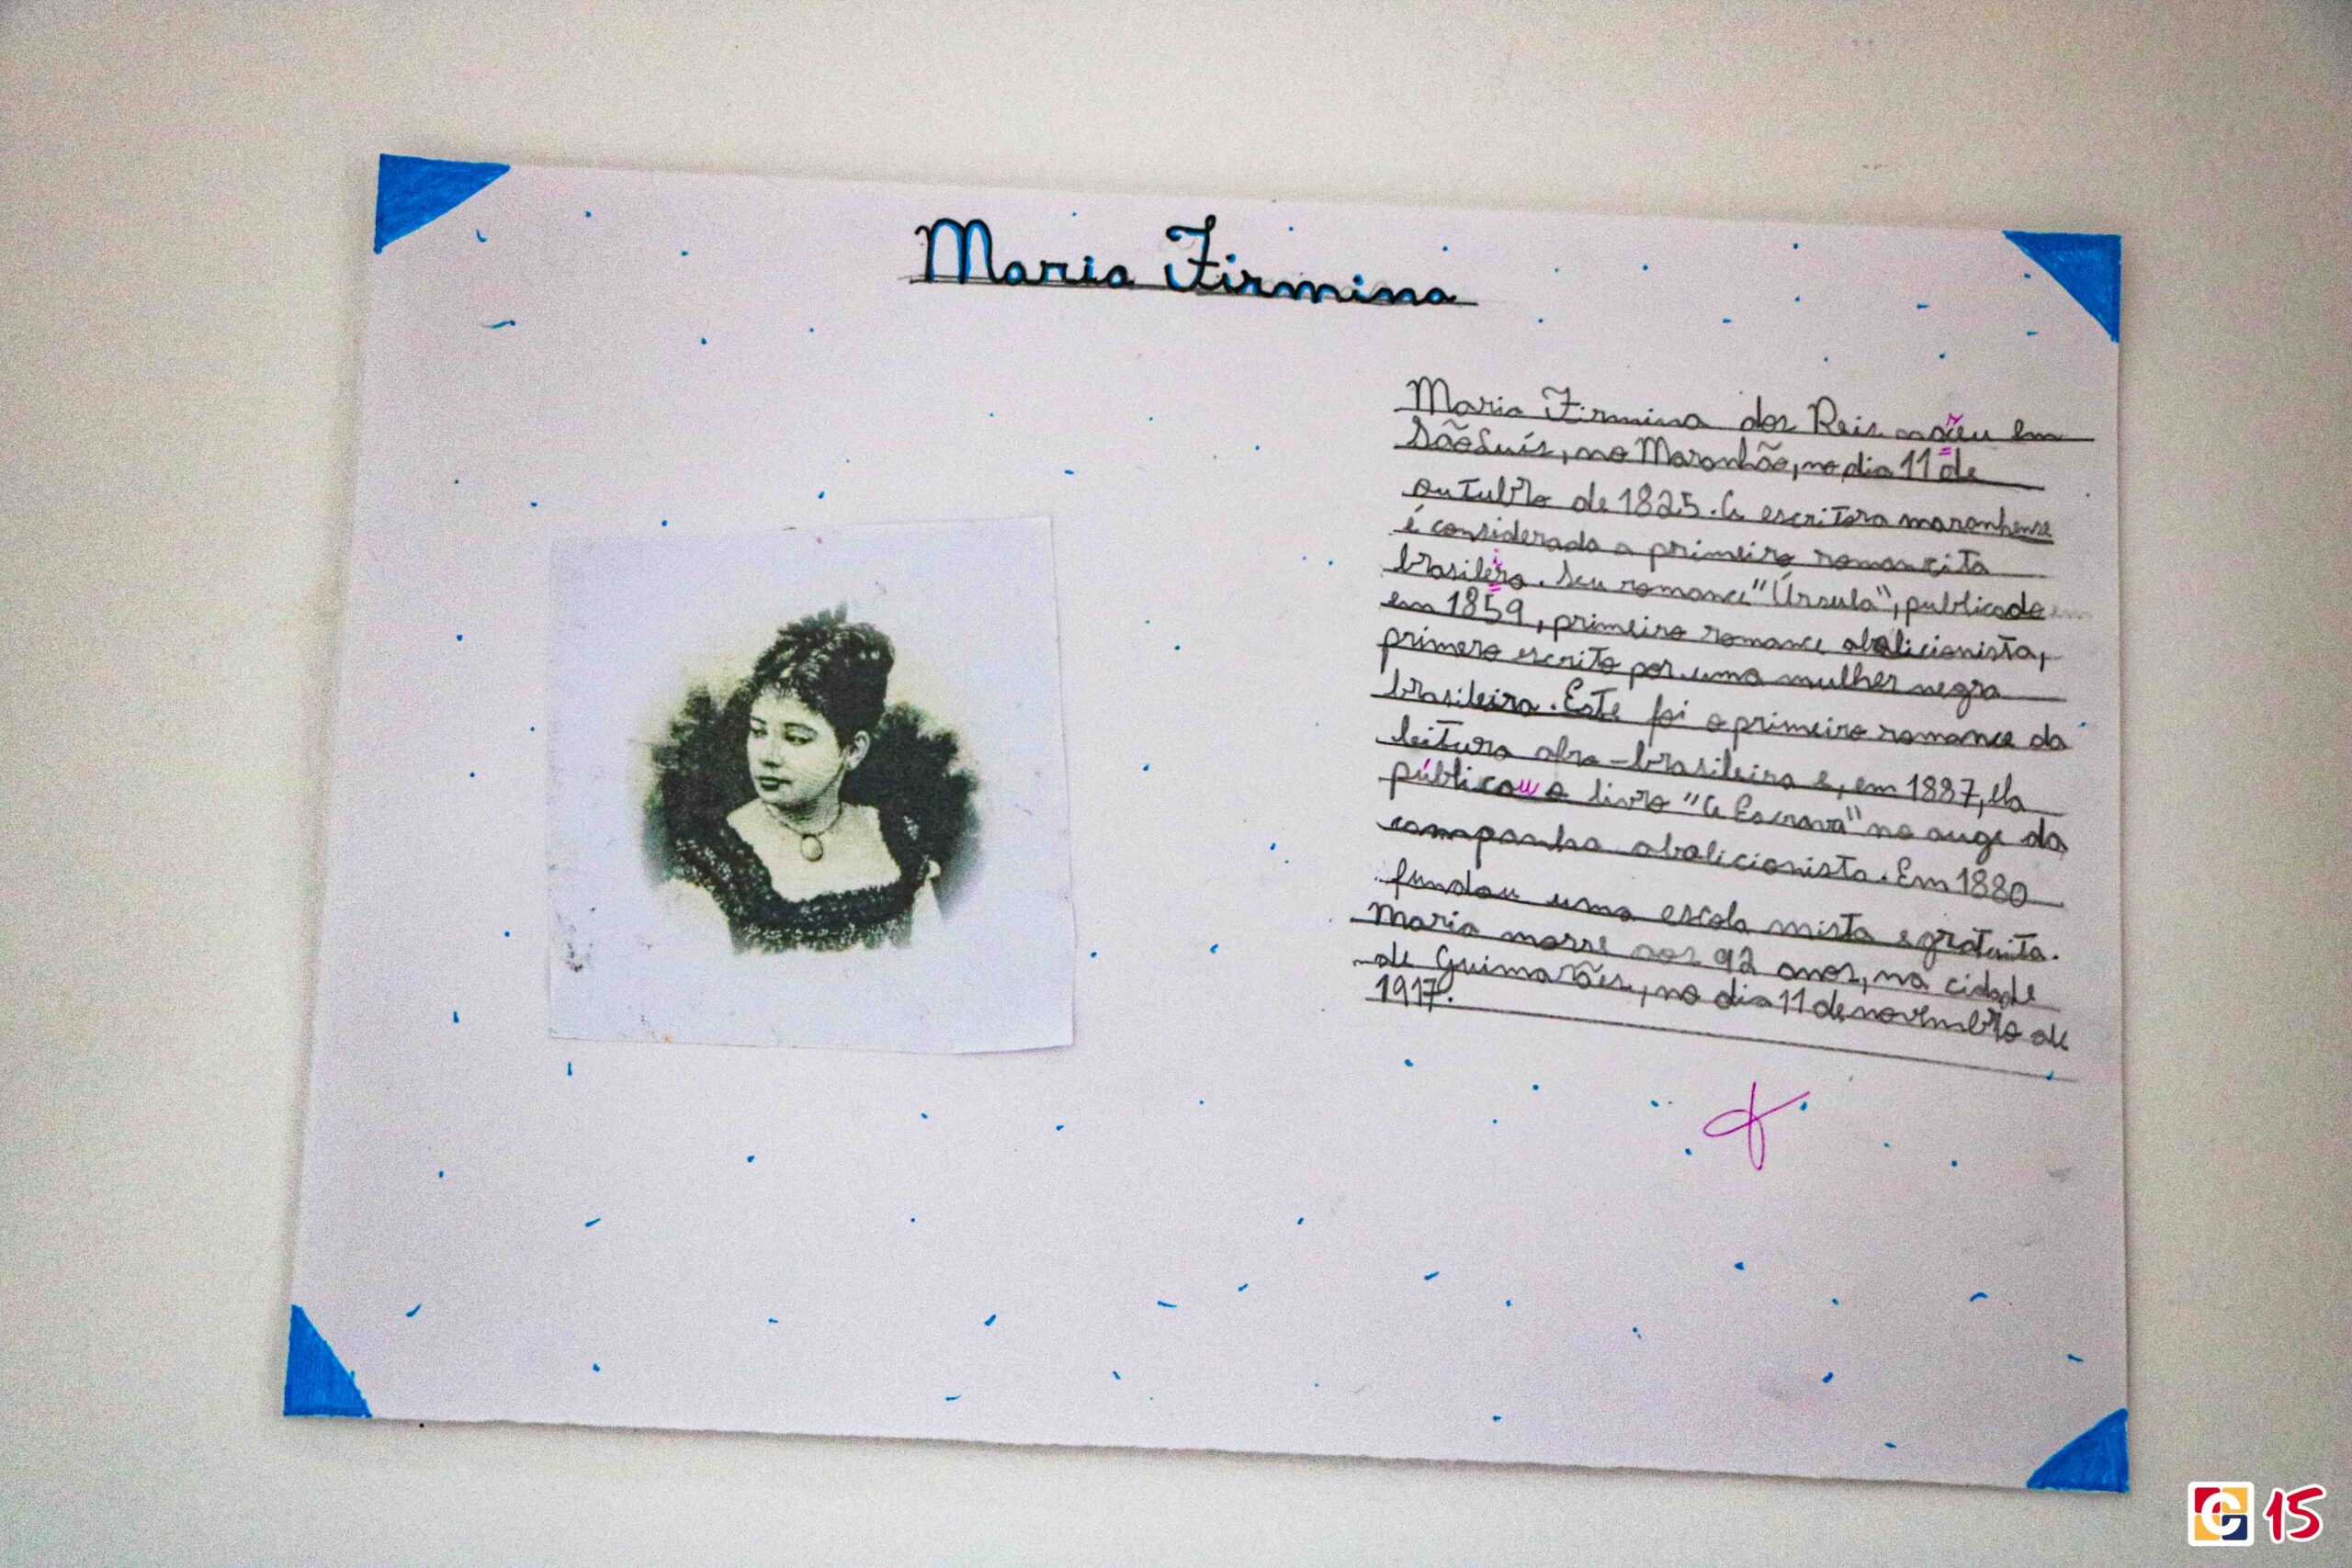 Maria Firmina
Maria Firmina dos Reis nasceu em
São Luís, no Maranhão, no dia 11 de
outubro de 1825. A escritora maranhense
é considerada a primeira romancita
brasileira. Seu romance "Úrsula", publicado em
em 1859, primeiro romance abolicionista,
primero escrito por uma mulher negra
brasileira. Este foi o primeiro romance da
leitura afra-brasileira e, em 1887, ela
públicou o livro "A Escrava" no auge da
campanha abolicionista. Em 1880
fundou uma escola mista e gratuita.
Maria morre aos 92 anos, na cidade
de Guimarães, no dia 11 de novembro de
1917.
15